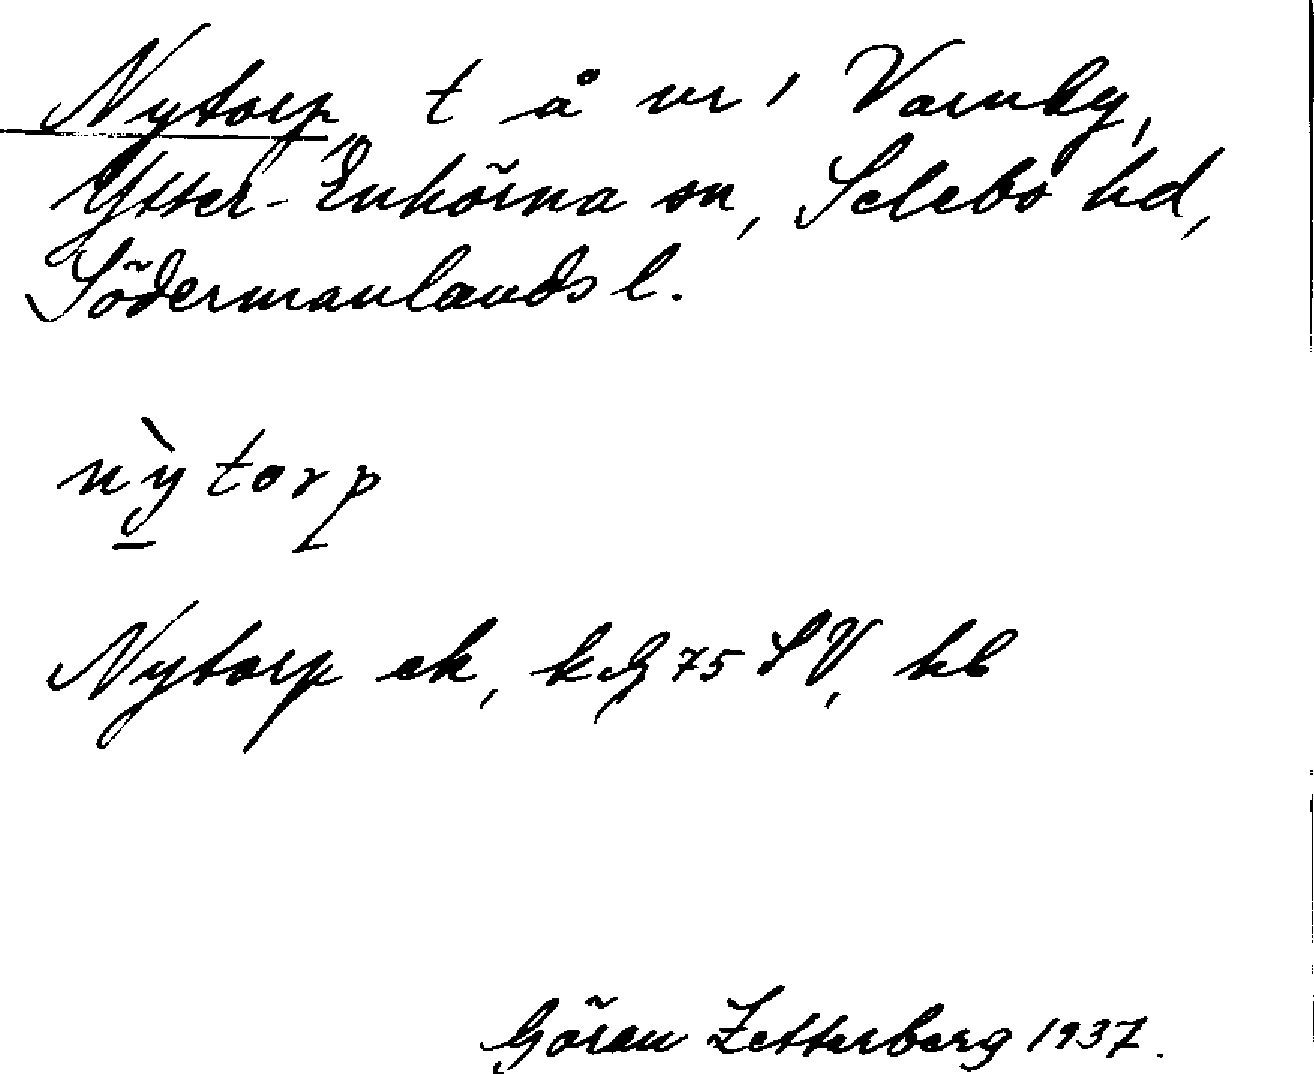 Nytorp t å nr 1 Varnby,
Ytter-Enhörna sn, Selebo hd,
Södermanlands l.
nỳtorp
Nytorp ek, kG 75 SV, hb
Göran Zetterberg 1937.